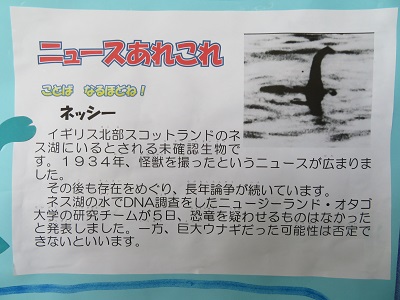 ニュースあれこれ
ことば なるほどね!
ネッシー
イギリス北部スコットランドのネ
ス湖にいるとされる未確認生物で
す。1934年、怪獣を撮ったというニュースが広まりま
した。
その後も存在をめぐり、長年論争が続いています。
ネス湖の水でDNA調査をしたニュージーランド・オタゴ
大学の研究チームが5日、恐竜を疑わせるものはなかった
と発表しました。一方、巨大ウナギだった可能性は否定で
きないといいます。